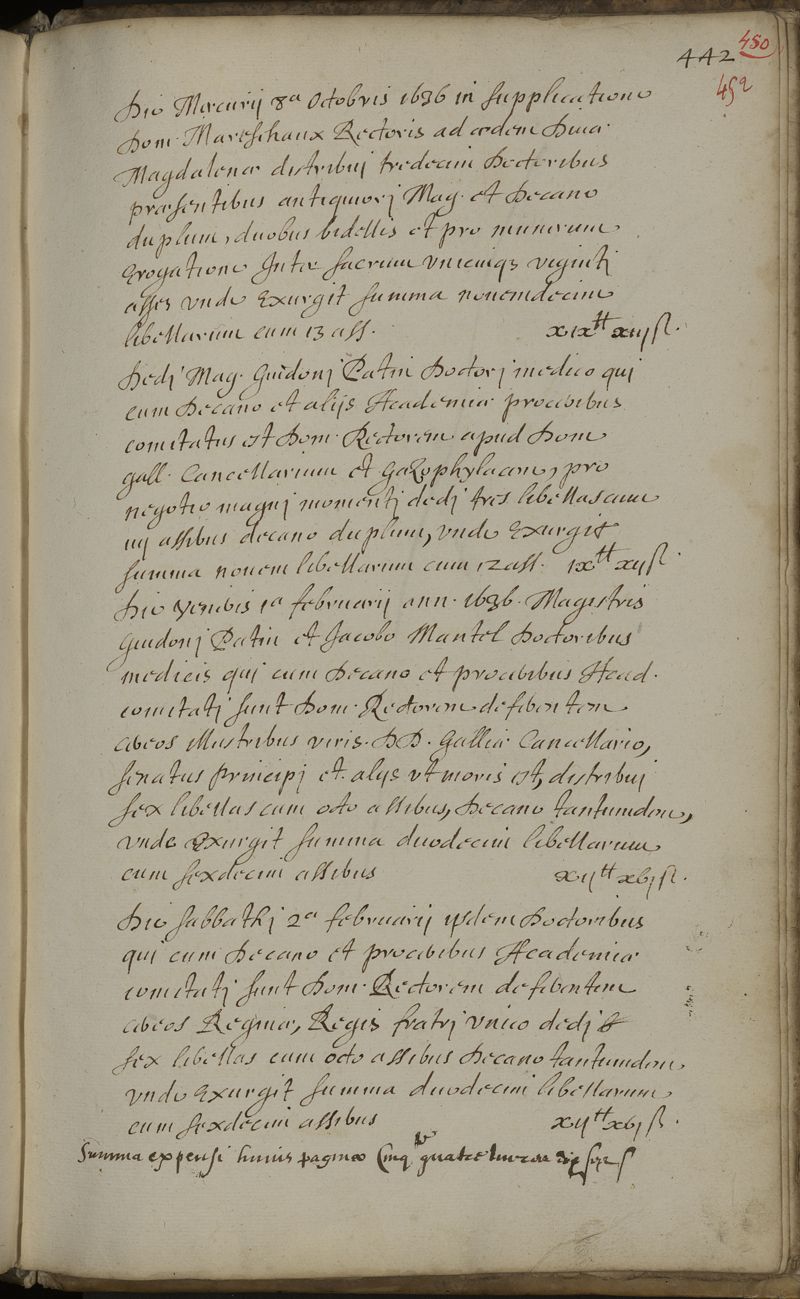 442
450
452
Die Mercurij 8a Octobris 1636 in supplicatione
Dom. Mareschaux Rectoris ad ædem Diuæ
Magdalenæ distribuj tredecim Doctoribus
præsentibus antiquiorj Mag. et Decano
duplum, duobus bidellis et pro munerum
Erogatione Inter sacrum vnicuiqz vigintj
asses vnde Exurgit summa nouemdecim
libellarum cum 13 ass. xixtt xiijs.
Dedj Mag. Guidonj Patin Doctorj medico quj
cum Decano et alijs Academiæ proceribus
comitatus est Dom. Rectorem apud Dom
gall. Cancellarium et Gazophylacem, pro
negotio magnj momentj dedj tres libellas cum
iiij assibus decano duplum, vnde Exurgit
summa nouem libellarum cum 12 ass. ixtt xijs.
Die Venēris 1a februarij ann. 1636. Magistris
Guidonj Patin et Jacobo Mantel Doctoribus
medicis quj cum Decano et proceribus Acad.
comitatj sunt Dom. Rectorem deferentem
cereos Illustribus viris. DD. Galliæ Cancellario,
senatus principj et alijs vt moris est, distribuj
sex libellas cum octo assibus, Decano tantumdem,
vnde Exurgit summa duodecim libellarum
cum sexdecim assibus xijtt xvjs.
Die sabbathj 2a februarij ijsdem Doctoribus
quj cum Decano et proceribus Academiæ
comitatj sunt Dom. Rectorem deferentem
cereos Reginæ, Regis fratrj vnico dedj
sex libellas cum octo assibus Decano tantumdem
vnde Exurgit summa duodecim libellarum
cum sexdecim assibus xijtt xvjs.
Summa expensi huius paginæ Cinq quatre